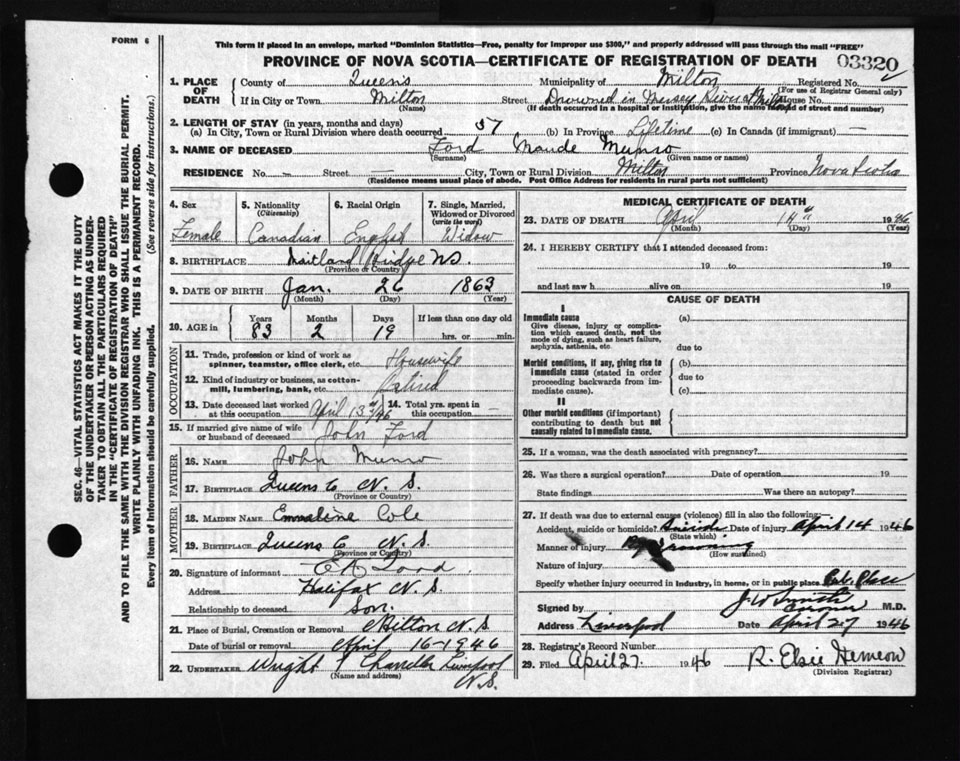 FORM 6
This form if placed in an envelope, marked "Dominion Statistics—Free, penalty for improper use $300," and properly addressed will pass through the mail "FREE"
PROVINCE OF NOVA SCOTIA—CERTIFICATE OF REGISTRATION OF DEATH
03320
1. PLACE OF DEATH
County of Queens Municipality of Milton Registered No.
(For use of Registrar General only)
If in City or Town Milton Street Drowned in Mersey River at Milton House No.
(Name) (If death occurred in a hospital or institution, give the name instead of street and number)
2. LENGTH OF STAY (in years, months and days)
(a) In City, Town or Rural Division where death occurred 57 (b) In Province Lifetime (c) In Canada (if immigrant) —
3. NAME OF DECEASED Ford Maude Munro
(Surname) (Given name or names)
RESIDENCE No. — Street — City, Town or Rural Division Milton Province Nova Scotia
(Residence means usual place of abode. Post Office Address for residents in rural parts not sufficient)
4. Sex Female
5. Nationality (Citizenship) Canadian
6. Racial Origin English
7. Single, Married, Widowed or Divorced (write the word) Widow
8. BIRTHPLACE Maitland Bridge N.S.
(Province or Country)
9. DATE OF BIRTH Jan. 26 1863
(Month) (Day) (Year)
10. AGE in Years Months Days If less than one day old
83 2 19 hrs. or min.
OCCUPATION
11. Trade, profession or kind of work as spinner, teamster, office clerk, etc. Housewife
12. Kind of industry or business, as cotton-mill, lumbering, bank, etc. Retired
13. Date deceased last worked at this occupation April 13th/46
14. Total yrs. spent in this occupation —
15. If married give name of wife or husband of deceased John Ford
FATHER
16. NAME John Munro
17. BIRTHPLACE Queens Co N. S.
(Province or Country)
MOTHER
18. MAIDEN NAME Emmaline Cole
19. BIRTHPLACE Queens Co N. S.
(Province or Country)
20. Signature of informant
Address Halifax N. S.
Relationship to deceased Son.
21. Place of Burial, Cremation or Removal Milton N. S
Date of burial or removal April 16-1946
22. UNDERTAKER Wright & Chandler Liverpool N.S.
(Name and address)
MEDICAL CERTIFICATE OF DEATH
23. DATE OF DEATH April 14th 1946
(Month) (Day) (Year)
24. I HEREBY CERTIFY that I attended deceased from:
19 to 19
and last saw h alive on 19
CAUSE OF DEATH
I
Immediate cause (a)
Give disease, injury or complication which caused death, not the mode of dying, such as heart failure, asphyxia, asthenia, etc.
due to
Morbid conditions, if any, giving rise to immediate cause (stated in order proceeding backwards from immediate cause).
(b)
due to
(c)
II
Other morbid conditions (if important) contributing to death but not causally related to immediate cause.
25. If a woman, was the death associated with pregnancy?
26. Was there a surgical operation? Date of operation 19
State findings Was there an autopsy?
27. If death was due to external causes (violence) fill in also the following:
Accident, suicide or homicide? Suicide Date of injury April 14 1946
(State which)
Manner of injury By drowning
(How sustained)
Nature of injury
Specify whether injury occurred in industry, in home, or in public place Pub. Place
Signed by J W Smith Coroner M.D.
Address Liverpool Date April 27 1946
28. Registrar's Record Number
29. Filed April 27. 1946 R. Elsie Hemeon
(Division Registrar)
SEC. 46—VITAL STATISTICS ACT MAKES IT THE DUTY
OF THE UNDERTAKER OR PERSON ACTING AS UNDER-
TAKER TO OBTAIN ALL THE PARTICULARS REQUIRED
IN THE "CERTIFICATE OF REGISTRATION OF DEATH"
AND TO FILE THE SAME WITH THE DIVISION REGISTRAR WHO SHALL ISSUE THE BURIAL PERMIT.
WRITE PLAINLY WITH UNFADING INK. THIS IS A PERMANENT RECORD.
Every item of Information should be carefully supplied. (See reverse side for instructions.)